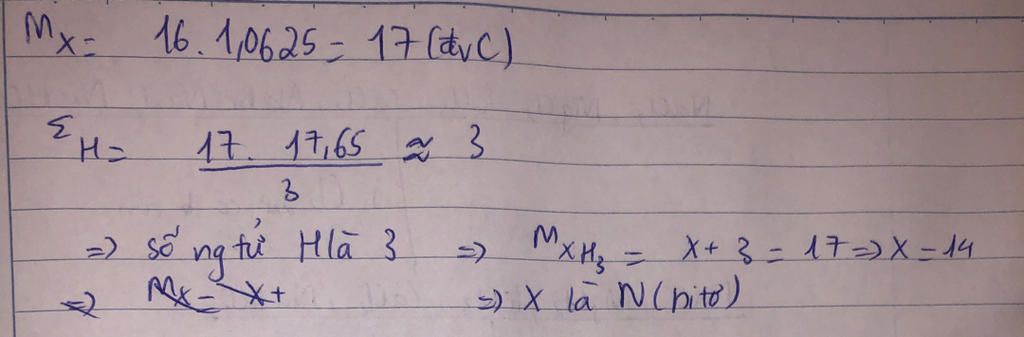 M_X = 16 . 1,0625 = 17 (đvC)
Σ_H = 17 . 17,65 / 3 ≈ 3
=> số ng tử H là 3 => M_XH₃ = X + 3 = 17 => X = 14
=> M_X = X + => X là N (nitơ)